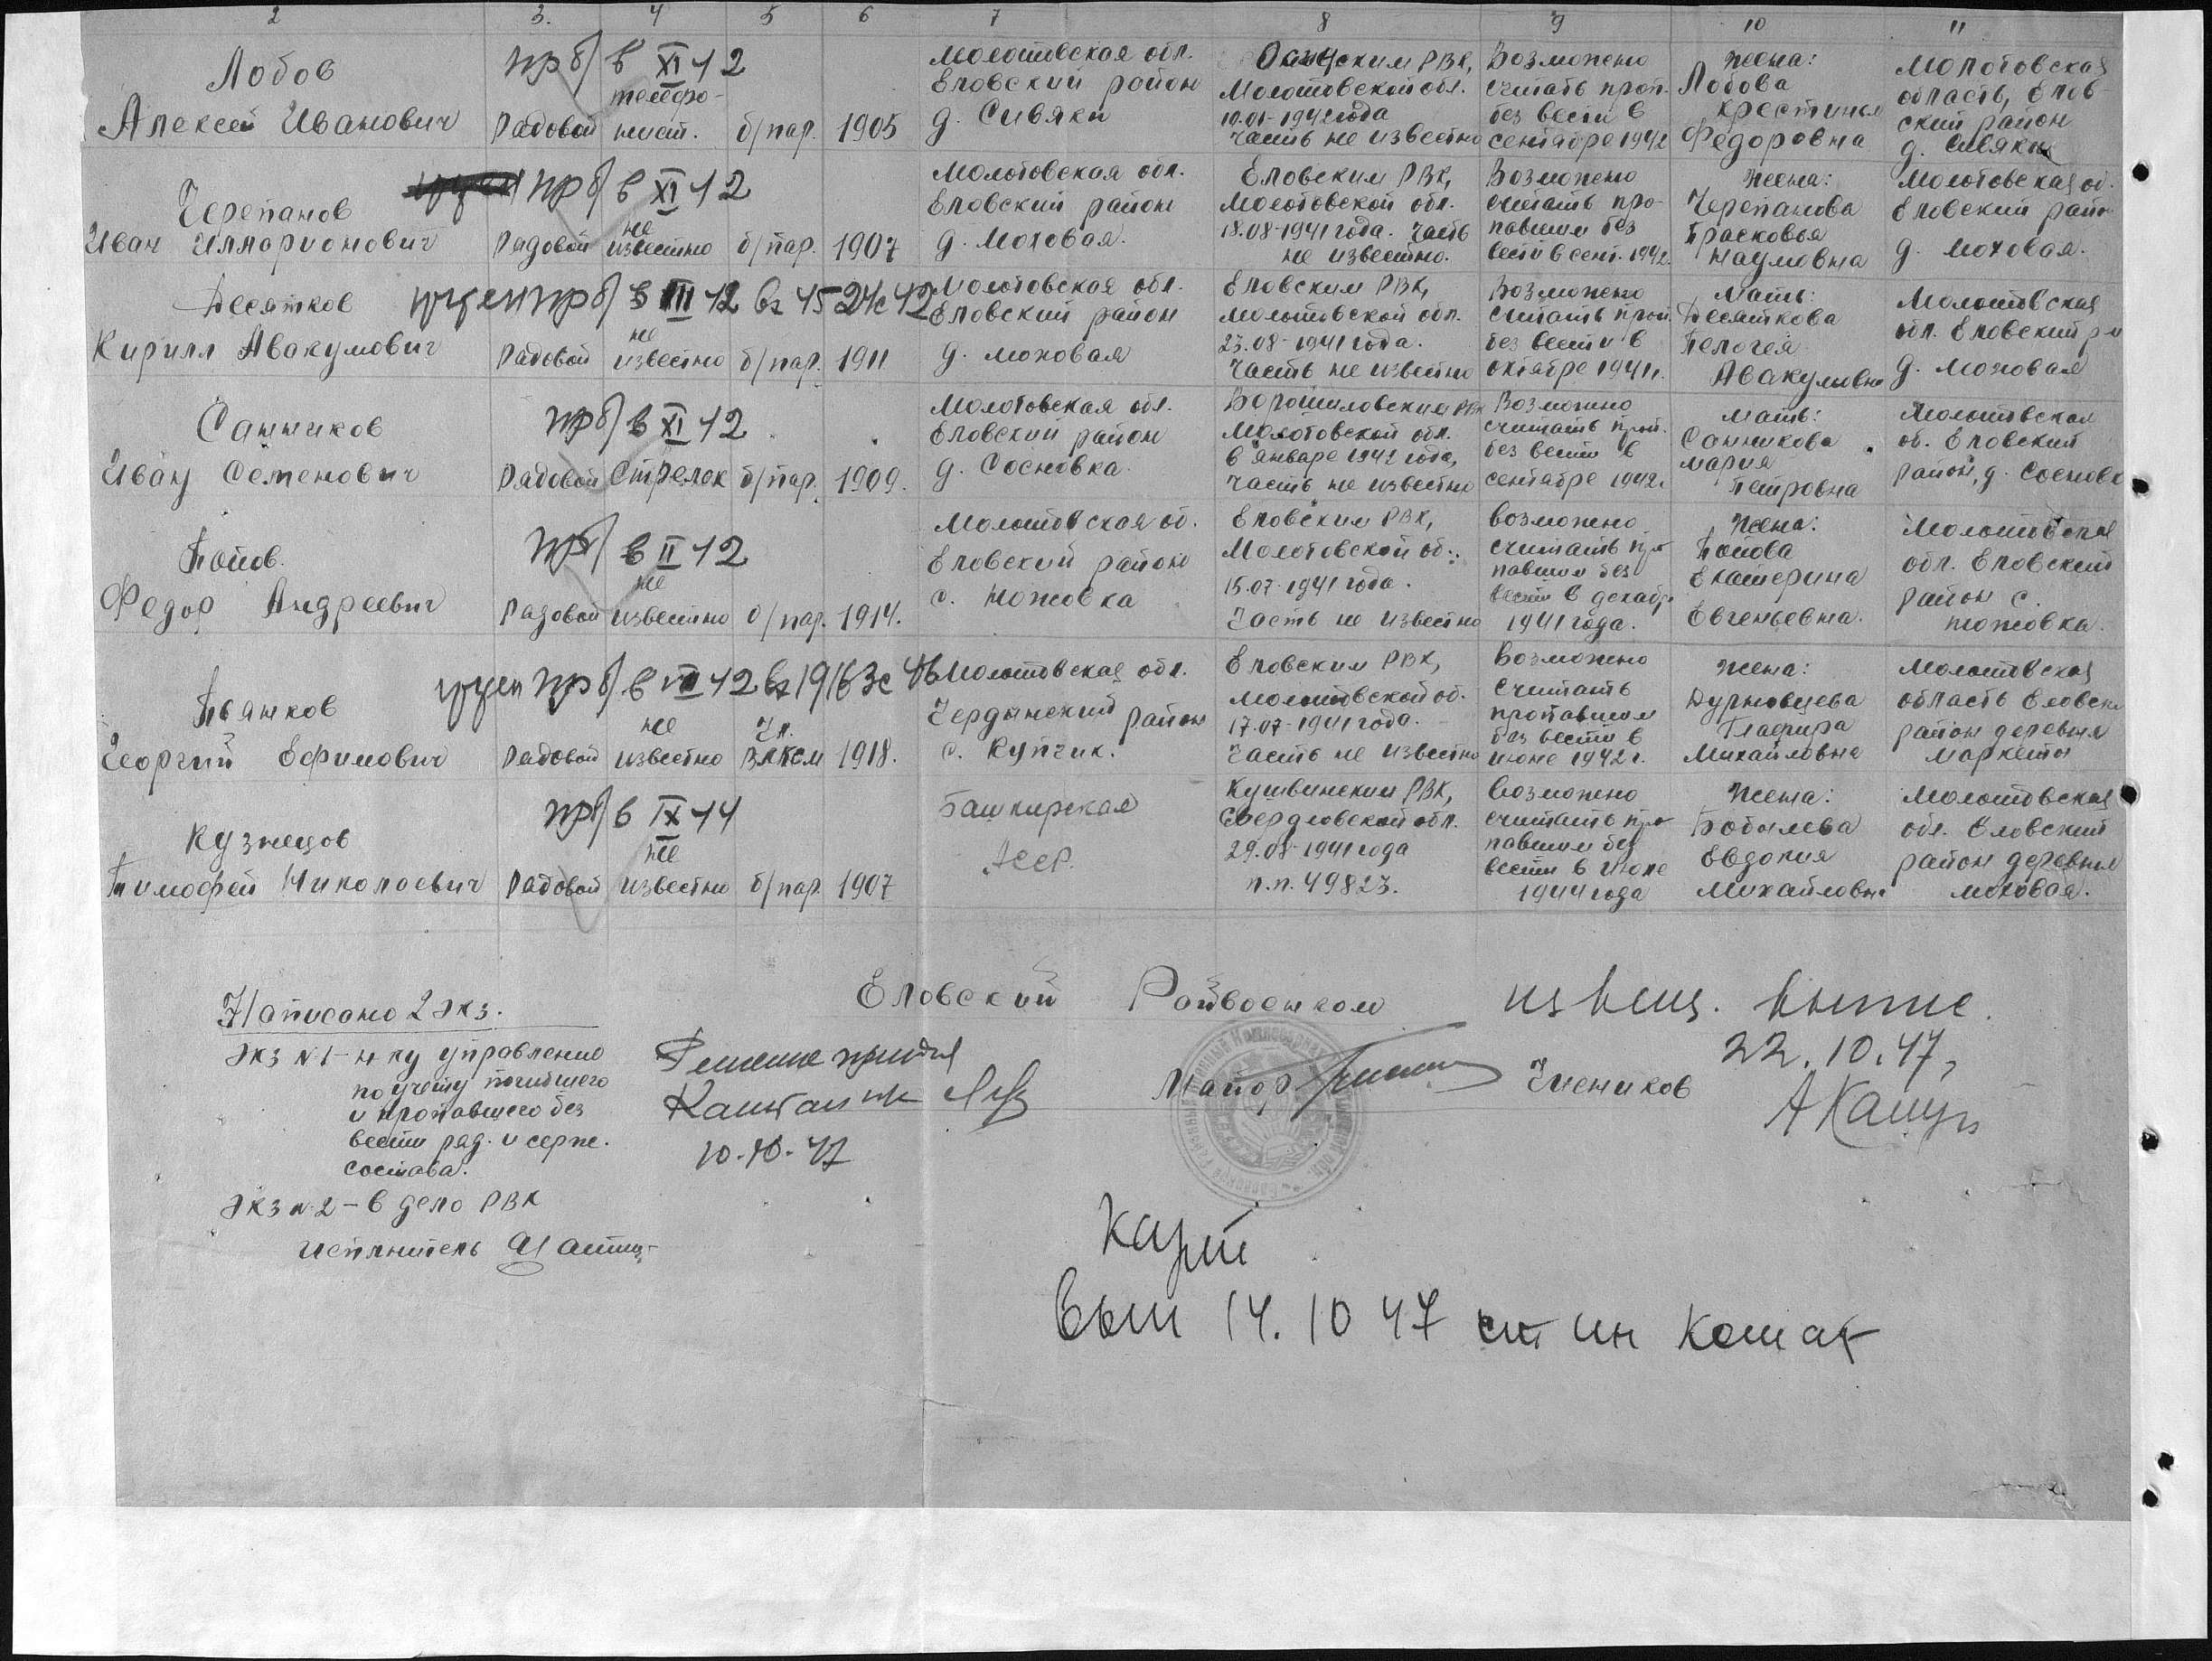 2 3. 4 5 6 7 8 9 10 11
Лобов
Алексей Иванович
пр б/в XI 42
Рядовой
телефо-
нист.
б/пар.
1905
Молотовская обл.
Еловский район
д. Сивяки
Осинским РВК,
Молотовской обл.
10.01-1942 года
Часть не известно
Возможено
считать проп.
без вести в
сентябре 1942
жена:
Лобова
Крестинья
Федоровна
Молотовская
область, Елов-
ский район
д. Сивяки
Черепанов
Иван Илларионович
пр б/в XI 42
Рядовой
не
известно
б/пар.
1907
Молотовская обл.
Еловский район
д. Моховая.
Еловским РВК,
Молотовской обл.
18.08-1941 года. Часть
не известно.
Возможено
считать про-
павшим без
вести в сент. 1942.
жена:
Черепанова
Прасковья
Наумовна
Молотовская об.
Еловский райо
д. Моховая.
Десятков
Кирилл Авакумович
пр б/в III 42
Рядовой
не
известно
б/пар.
1911
Молотовская обл.
Еловский район
д. моховая
Еловским РВК,
Молотовской обл.
23.08-1941 года.
Часть не известно
Возможено
считать проп.
без вести в
октябре 1941 г.
Мать:
Десяткова
Пелогея
Авакумовна
Молотовская
обл. Еловский р-н
д. моховая
Санников
Иван Семенович
пр б/в XI 42
Рядовой
Стрелок
б/пар.
1909.
Молотовская обл.
Еловский район
д. Сосновка.
Ворошиловским РВК
Молотовской обл.
в январе 1942 года,
Часть не известно
Возможно
считать проп.
без вести в
сентябре 1942 г.
мать:
Санникова
мария
Петровна
Молотовская
об. Еловский
район, д. Сосновк
Попов.
Федор Андреевич
пр б/в II 42
Рядовой
не
известно
б/пар.
1914.
Молотовская об.
Еловский район
с. Ножовка
Еловским РВК,
Молотовской об.
15.07-1941 года.
Часть не известно
Возможено
считать про
павшим без
вести в декабр
1941 года.
жена:
Попова
Екатерина
Евгеньевна.
Молотовская
обл. Еловский
район с.
ножовка.
Пьянков
Георгий Ефимович
Рядовой
не
известно
Чл.
ВЛКСМ
1918.
Молотовская обл.
Чердынский район
с. Купчик.
Еловским РВК,
молотовской об.
17.07-1941 года.
Часть не известно
Возможено
считать
пропавшим
без вести в
июне 1942 г.
жена:
Дурновцева
Глафира
Михайловна
Молотовская
область Еловски
район деревня
маркеты
Кузнецов
Тимофей Николаевич
пр б/в IX 44
Рядовой
не
известно
б/пар.
1907
Башкирская
АССР.
Кушвинским РВК,
Свердловской обл.
29.08-1941 года
п.п. 49823.
Возможено
считать про
павшим без
вести в июле
1944 года
жена:
Бобылева
Евдокия
Михайловна
Молотовская
обл. Еловский
район деревня
моховая.
Еловский Райвоенком
Майор Членников
Написано 2 экз.
Экз №1 - н-ку управление
по учету погибшего
и пропавшего без
вести ряд. и серж.
состава.
Экз №2 - в дело РВК
Решение принял
Капитан
10.10.47
извещ. выпис.
22.10.47,
Карт
вып 14.10 47